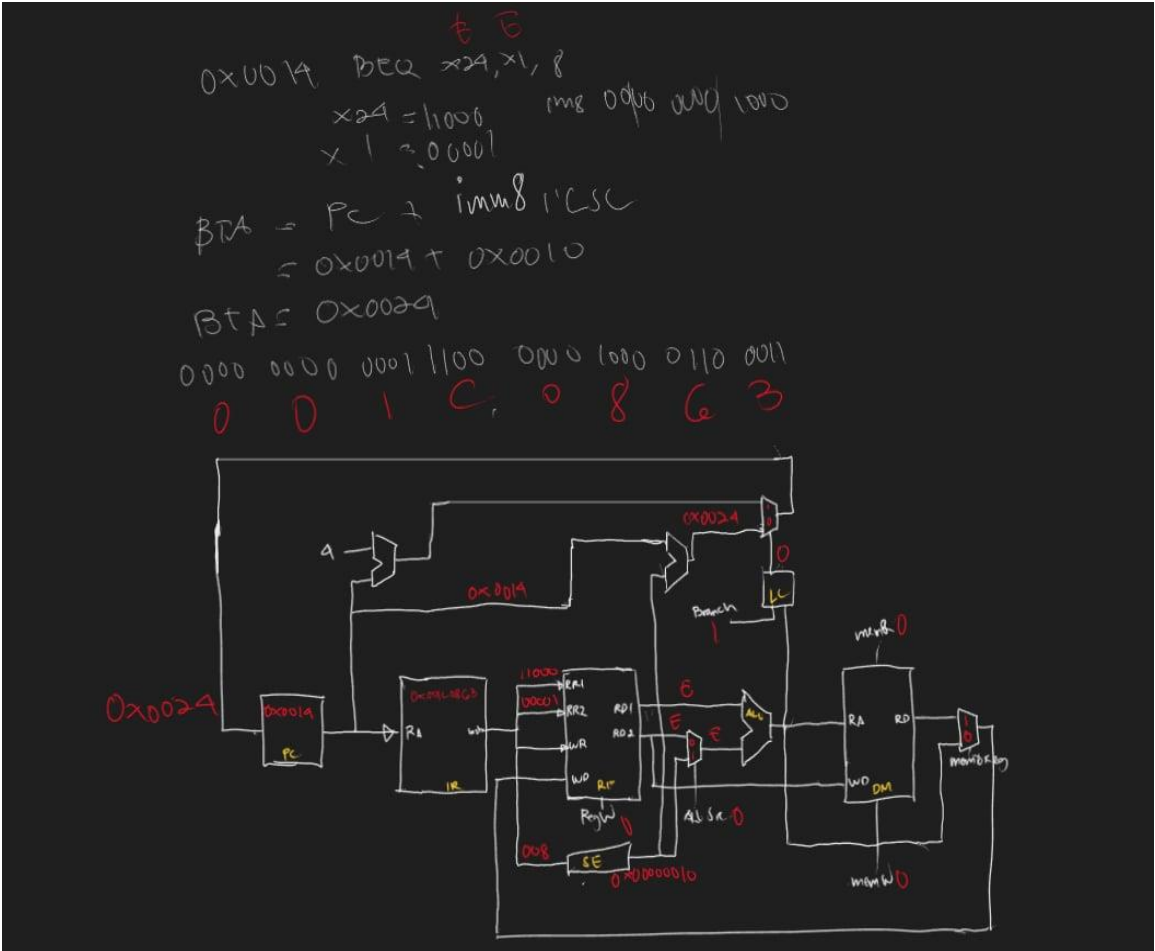 E E
0x0014 BEQ x24, x1, 8
x24 = 11000 imm8 0000 0000 1000
x1 = 00001
BTA = PC + imm8 1'LSL
= 0x0014 + 0x0010
BTA = 0x0024
0000 0000 0001 1100 0000 1000 0110 0011
0 0 1 C 0 8 6 3
0x0024
1
0
4
0
0x0014
LC
Branch
1
memR 0
11000
0x0024
0x0014
PC
0x001C0863
RA
IR
00001
RR1
RR2
WR
WD
RD1
RD2
RF
RegW 0
E
E
E
0
1
ALU
ALSR 0
RA
RD
WD
DM
1
0
memtoReg
008
SE
0x00000010
memW 0